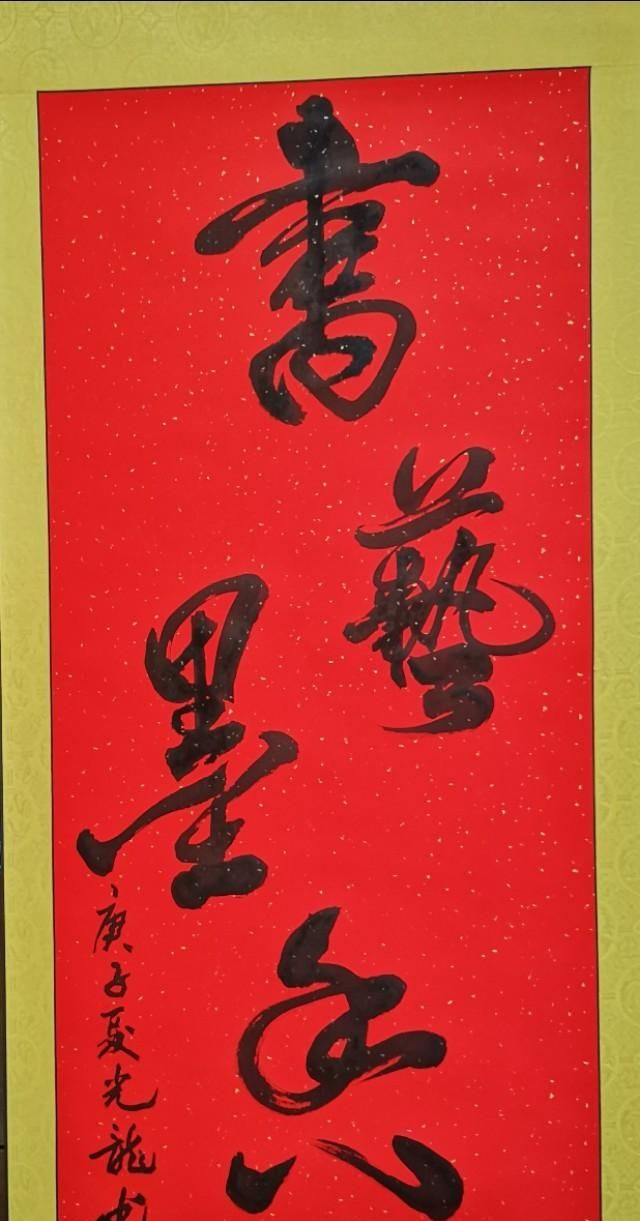 書藝墨香
庚子夏光龍